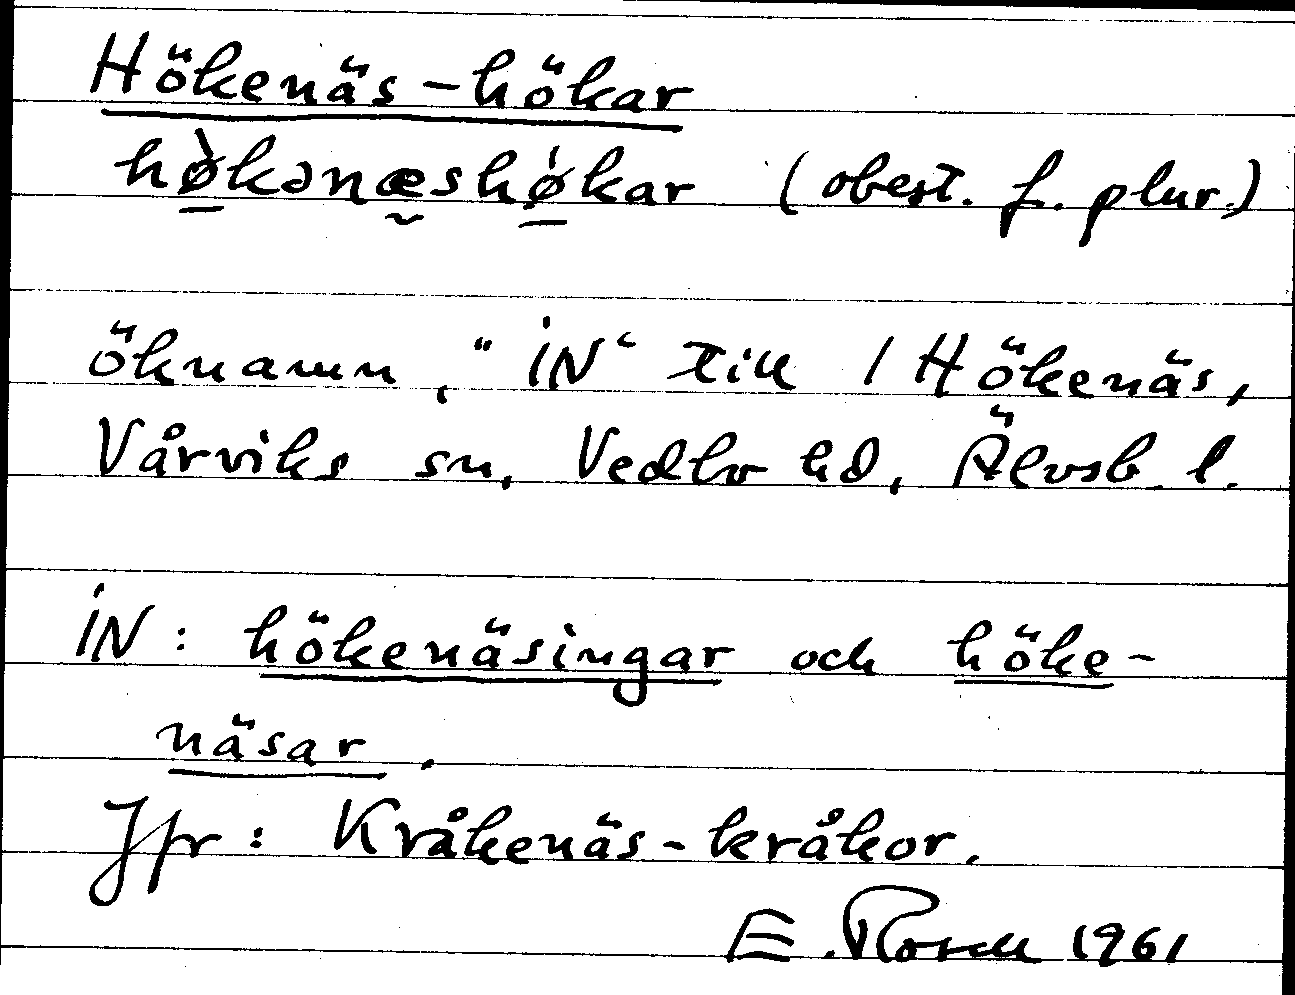 Hökenäs-hökar
hø̀kənæshǿkar (obest. f. plur.)
öknamn, "iN" till 1 Hökenäs,
Vårviks sn, Vedbo hd, Älvsb. l.
iN: hökenäsingar och höke-
näsar.
Jfr: Kråkenäs-kråkor.
E. Rosell 1961